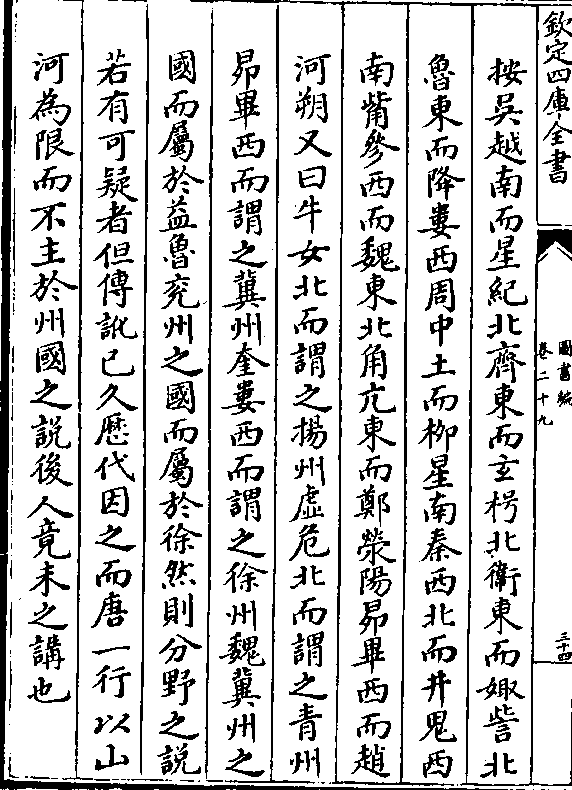 欽定四庫全書
圖書編
卷二十九
三十四
按吳越南而星紀北齊東而玄枵北衛東而娵訾北
魯東而降婁西周中土而柳星南秦西北而井鬼西
南觜參西而魏東北角亢東而鄭滎陽昴畢西而趙
河朔又曰牛女北而謂之揚州虛危北而謂之青州
昴畢西而謂之冀州奎婁西而謂之徐州魏冀州之
國而屬於益魯兖州之國而屬於徐然則分野之説
若有可疑者但傳訛已久歴代因之而唐一行以山
河為限而不主於州國之説後人竟未之講也